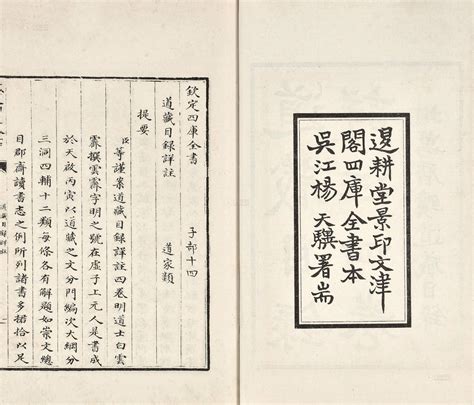 退耕堂景印文津
閣四庫全書本
吳江楊天驥署耑
欽定四庫全書
子部十四
道藏目錄詳註
道家類
提要
臣等謹案道藏目錄詳註四卷明道士白雲
霽撰雲霽字明之號在虛子上元人是書成
於天啟丙寅以道藏之文分門編次大綱分
三洞四輔十二類每條各有解題如崇文總
目郡齋讀書志之例所列諸書多捃拾以足
道藏目錄詳註